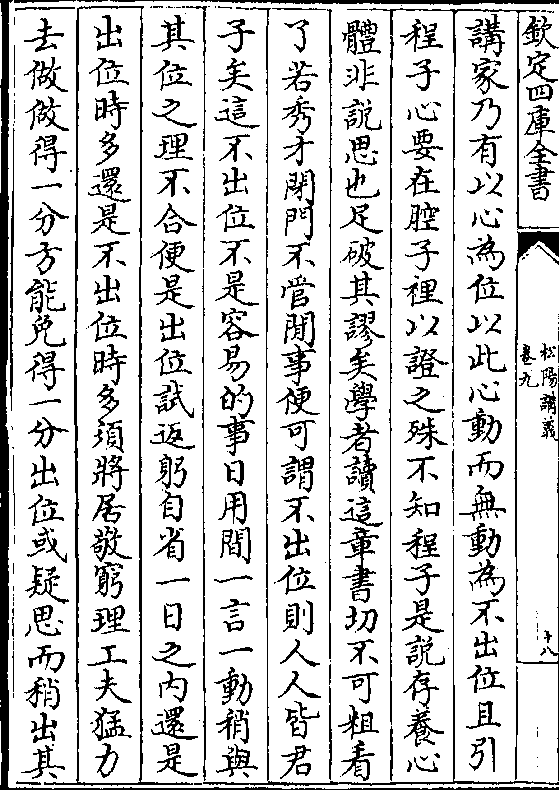 欽定四庫全書
松陽講義
卷九
十八
講家乃有以心為位以此心動而無動為不出位且引
程子心要在腔子裡以證之殊不知程子是説存養心
體非説思也足破其謬矣學者讀這章書切不可粗看
了若秀才閉門不管閒事便可謂不出位則人人皆君
子矣這不出位不是容易的事日用間一言一動稍與
其位之理不合便是出位試返躬自省一日之内還是
出位時多還是不出位時多須將居敬窮理工夫猛力
去做做得一分方能免得一分出位或疑思而稍出其